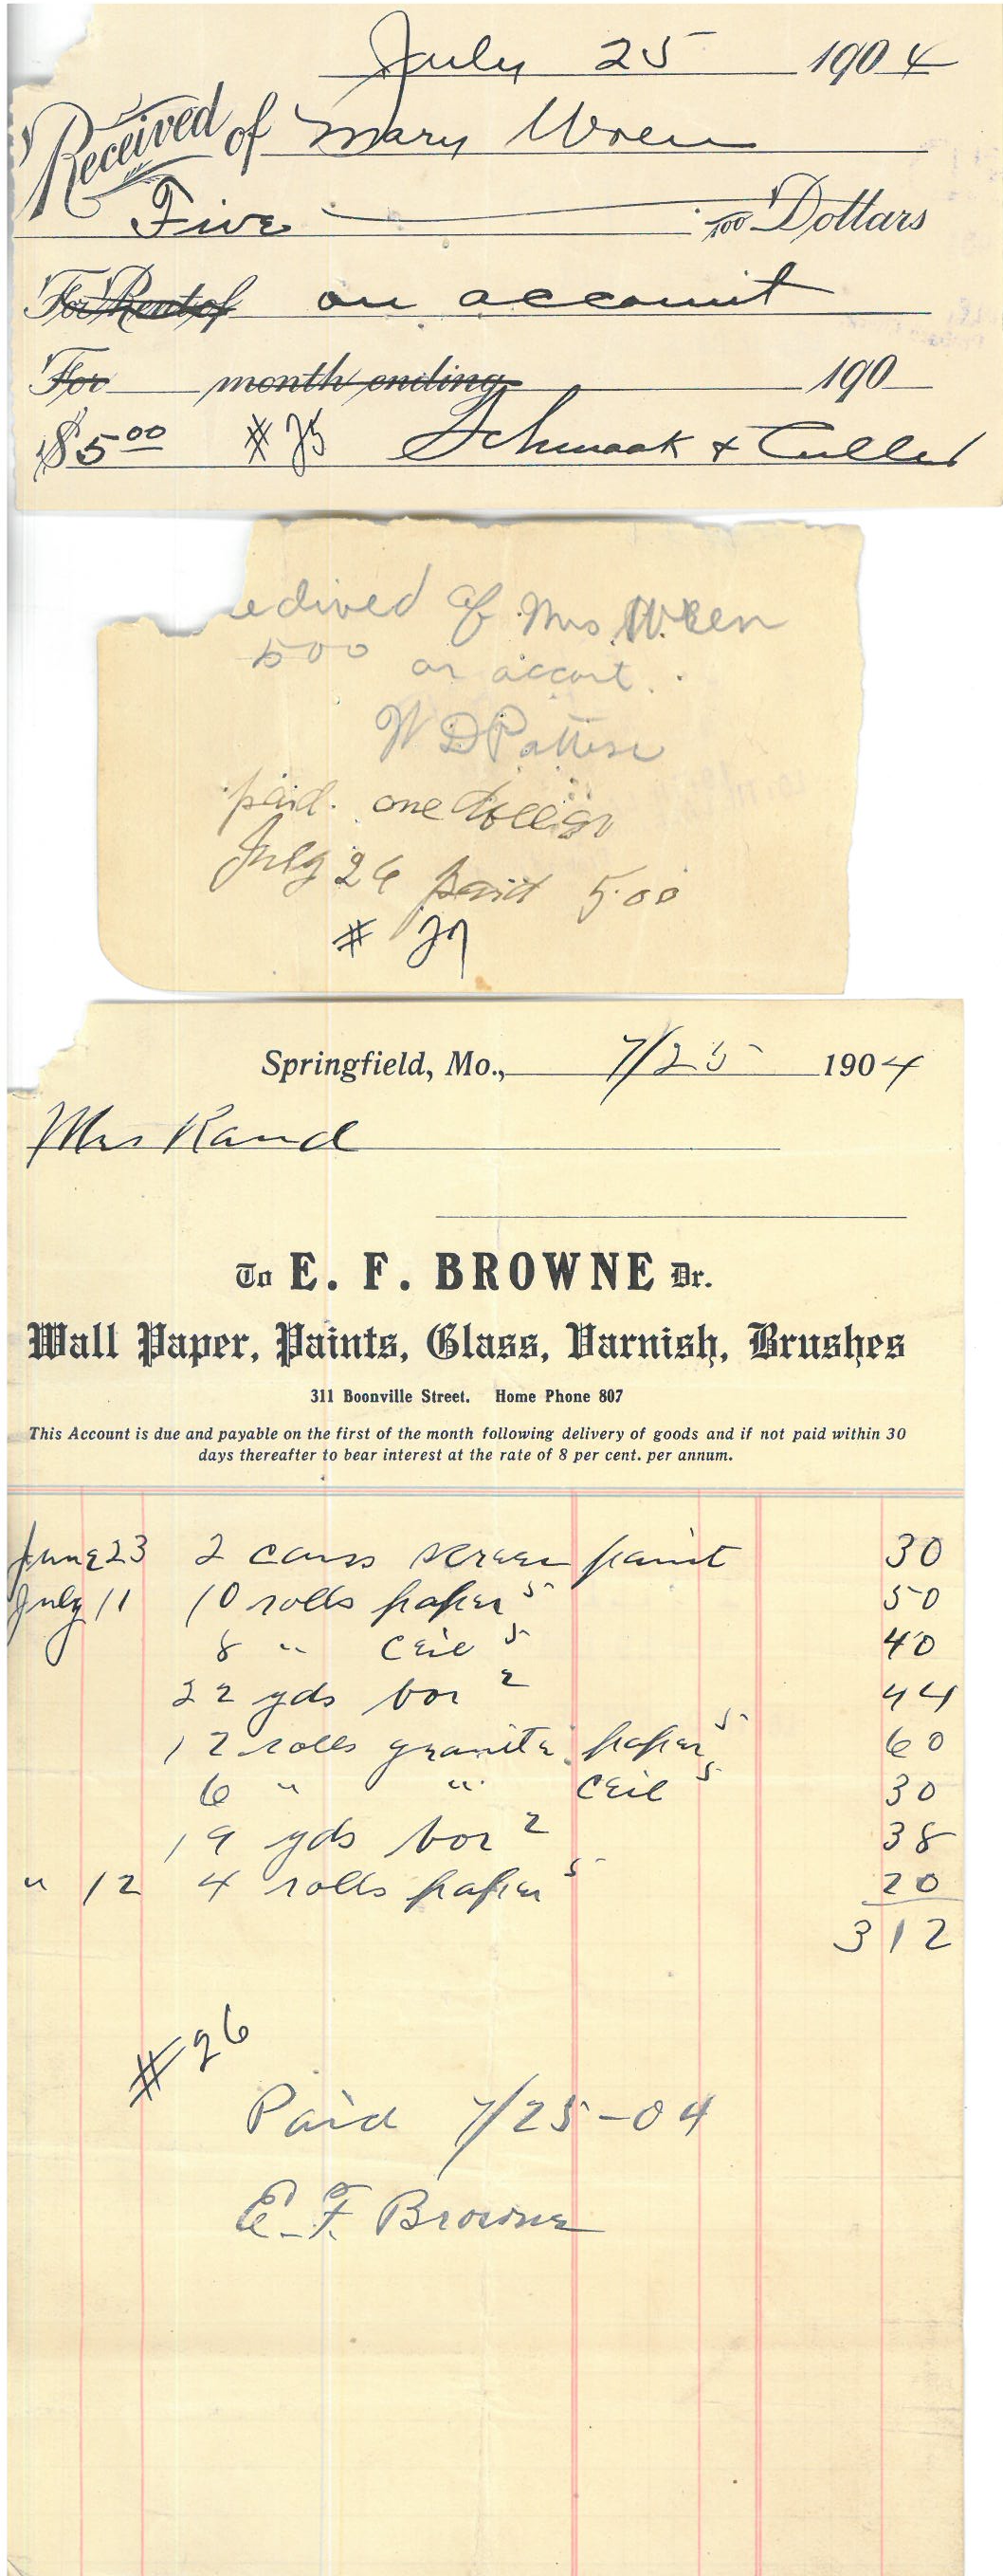 July 25 1904
Received of Mary Wren
Five /100 Dollars
For Rent of on account
For month ending 190
$5.00 #25 Schmook + Culler
edived of Mrs Wren
500 on accont.
W D Patterson
paid. one doller
July 26 paid 5.00
# 27
Springfield, Mo., 7/25 1904
Mrs Rand
To E. F. BROWNE Dr.
Wall Paper, Paints, Glass, Varnish, Brushes
311 Boonville Street. Home Phone 807
This Account is due and payable on the first of the month following delivery of goods and if not paid within 30
days thereafter to bear interest at the rate of 8 per cent. per annum.
June 23 2 cans screen paint 30
July 11 10 rolls paper 5 50
8 " ceil 5 40
22 yds bor 2 44
12 rolls granite paper 5 60
6 " " ceil 5 30
19 yds bor 2 38
" 12 4 rolls paper 5 20
312
#26
Paid 7/25-04
E. F. Browne